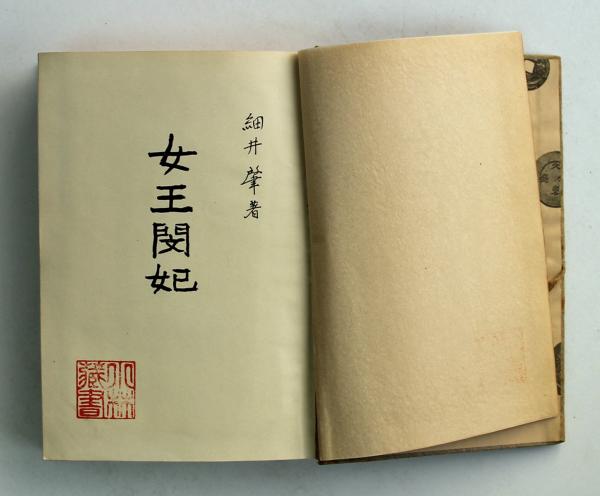 細井肇著
女王閔妃
藏書